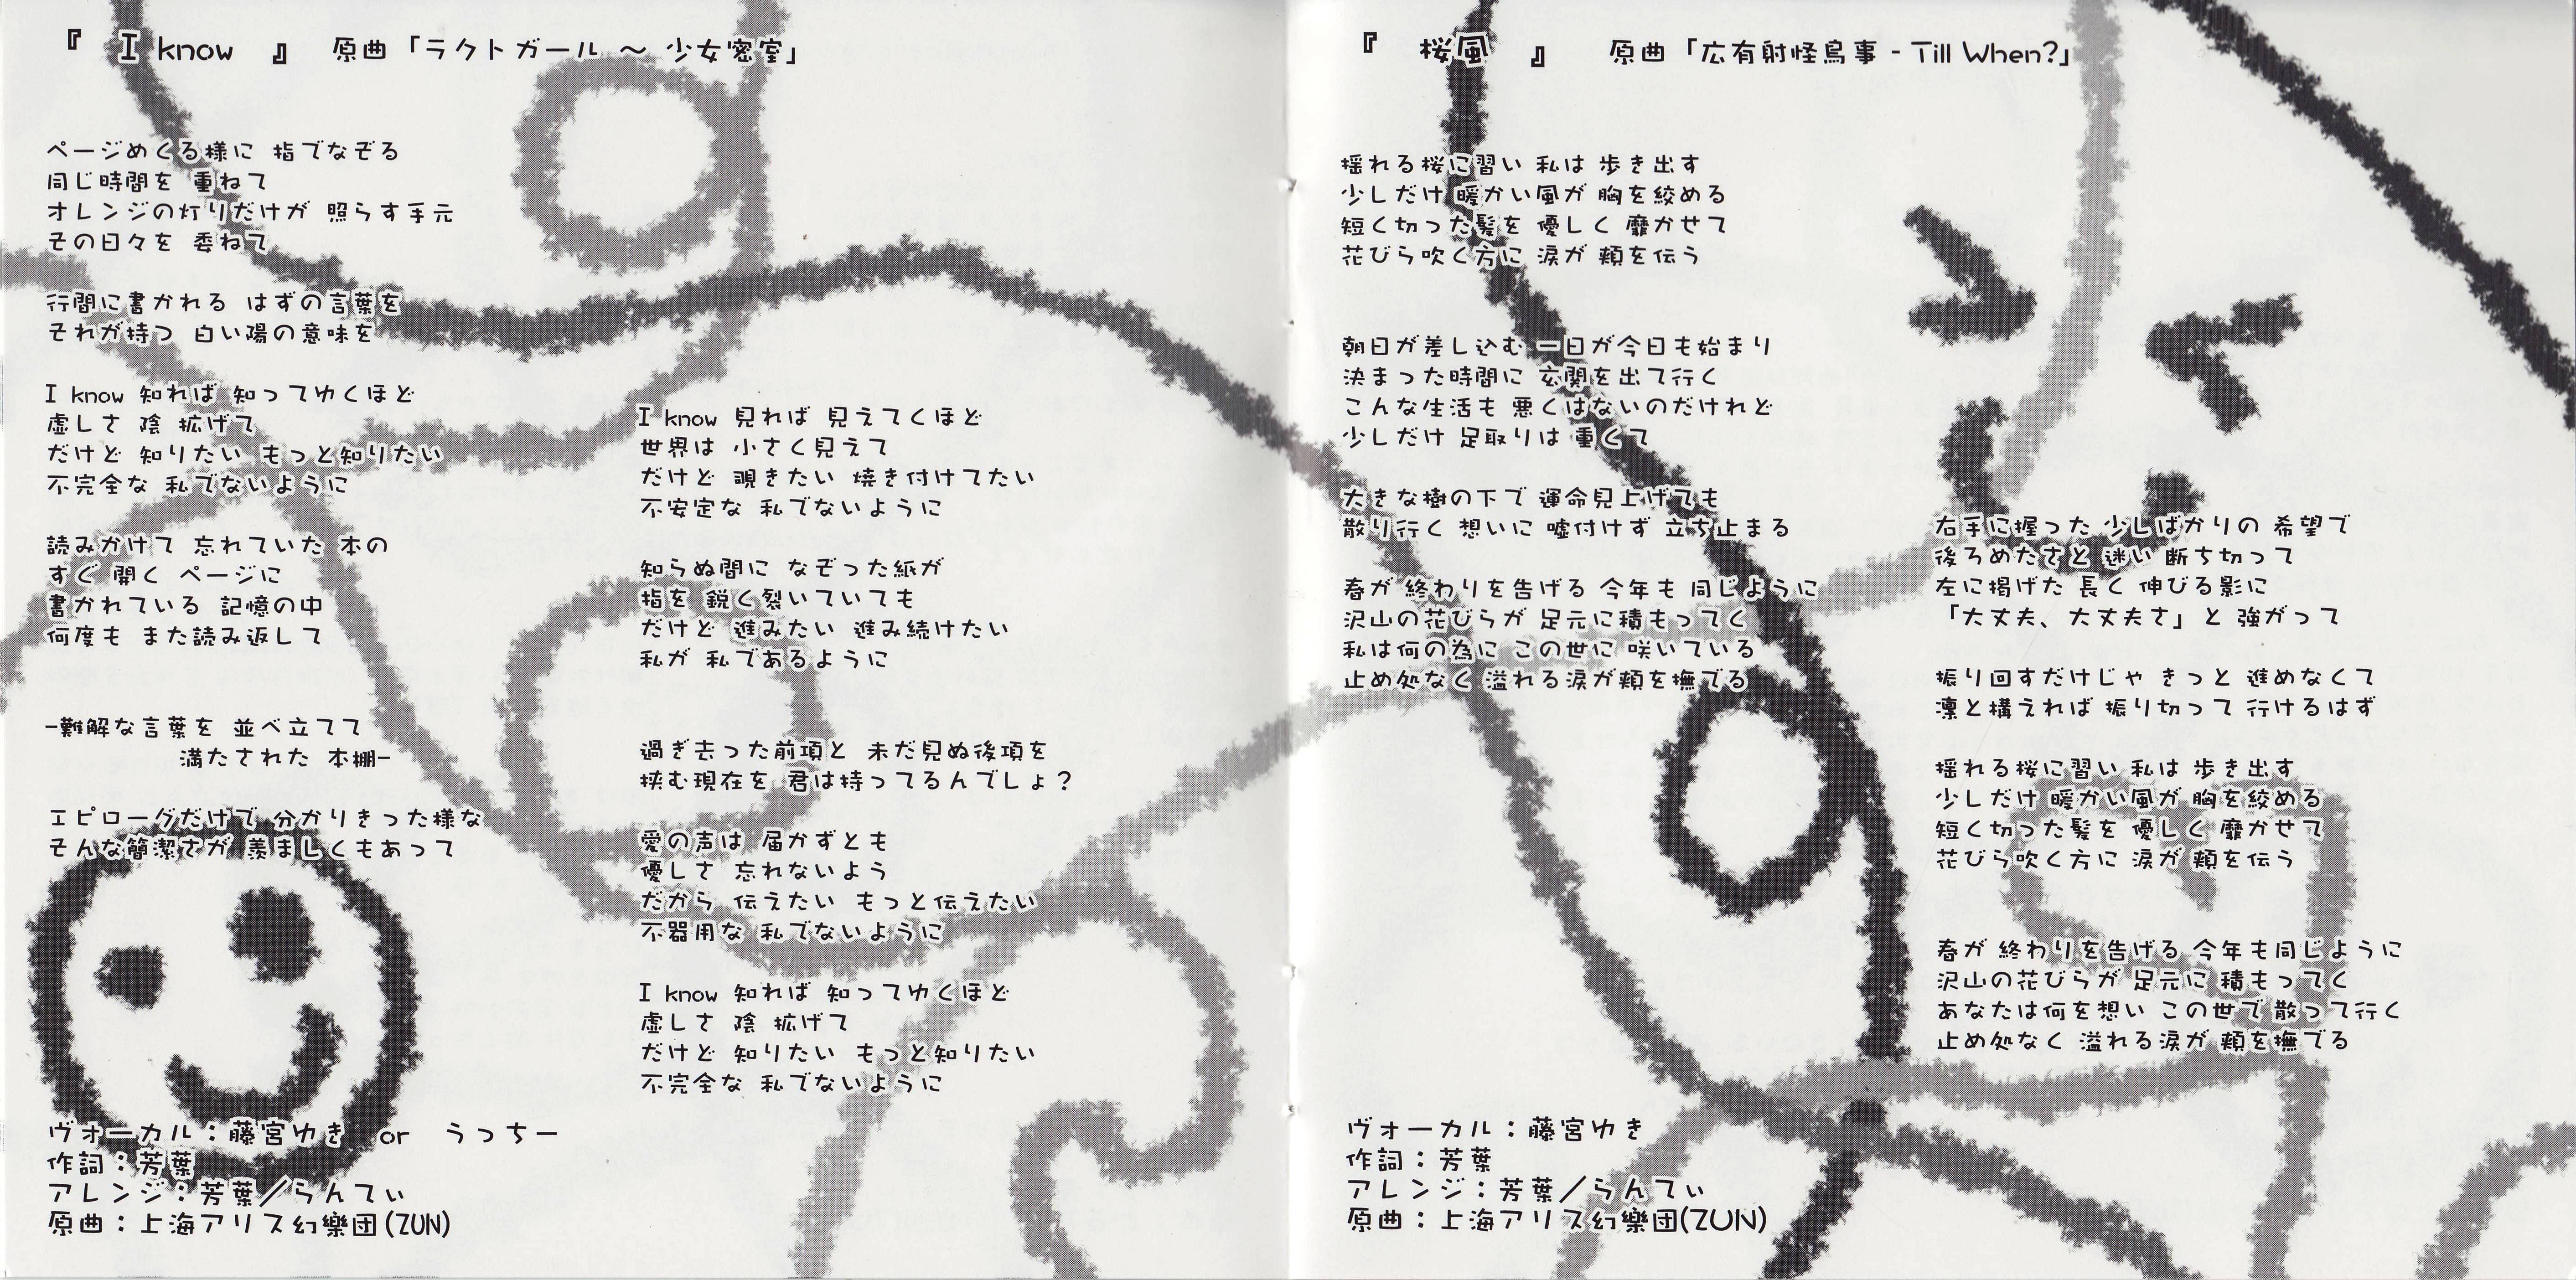 『 I know 』 原曲「ラクトガール ～ 少女密室」
ページめくる様に 指でなぞる
同じ時間を 重ねて
オレンジの灯りだけが 照らす手元
その日々を 委ねて
行間に書かれる はずの言葉を
それが持つ 白い陽の意味を
I know 知れば 知ってゆくほど
虚しさ 陰 拡げて
だけど 知りたい もっと知りたい
不完全な 私でないように
読みかけて 忘れていた 本の
すぐ 開く ページに
書かれている 記憶の中
何度も また読み返して
-難解な言葉を 並べ立てて
満たされた 本棚-
エピローグだけで 分かりきった様な
そんな簡潔さが 羨ましくもあって
I know 見れば 見えてくほど
世界は 小さく見えて
だけど 覗きたい 焼き付けてたい
不安定な 私でないように
知らぬ間に なぞった紙が
指を 鋭く裂いていても
だけど 進みたい 進み続けたい
私が 私であるように
過ぎ去った前項と 未だ見ぬ後項を
挟む現在を 君は持ってるんでしょ？
愛の声は 届かずとも
優しさ 忘れないよう
だから 伝えたい もっと伝えたい
不器用な 私でないように
I know 知れば 知ってゆくほど
虚しさ 陰 拡げて
だけど 知りたい もっと知りたい
不完全な 私でないように
ヴォーカル：藤宮ゆき or うっちー
作詞：芳葉
アレンジ：芳葉／らんてぃ
原曲：上海アリス幻樂団(ZUN)
『 桜風 』 原曲「広有射怪鳥事 - Till When?」
揺れる桜に習い 私は 歩き出す
少しだけ 暖かい風が 胸を絞める
短く切った髪を 優しく 靡かせて
花びら吹く方に 涙が 頬を伝う
朝日が差し込む 一日が今日も始まり
決まった時間に 玄関を出て行く
こんな生活も 悪くはないのだけれど
少しだけ 足取りは 重くて
大きな樹の下で 運命見上げても
散り行く 想いに 嘘付けず 立ち止まる
春が 終わりを告げる 今年も 同じように
沢山の花びらが 足元に積もってく
私は何の為に この世に 咲いている
止め処なく 溢れる涙が頬を撫でる
右手に握った 少しばかりの 希望で
後ろめたさと 迷い 断ち切って
左に掲げた 長く 伸びる影に
「大丈夫、大丈夫さ」と 強がって
振り回すだけじゃ きっと 進めなくて
凛と構えれば 振り切って 行けるはず
揺れる桜に習い 私は 歩き出す
少しだけ 暖かい風が 胸を絞める
短く切った髪を 優しく 靡かせて
花びら吹く方に 涙が 頬を伝う
春が 終わりを告げる 今年も同じように
沢山の花びらが 足元に 積もってく
あなたは何を想い この世で 散って行く
止め処なく 溢れる涙が 頬を撫でる
ヴォーカル：藤宮ゆき
作詞：芳葉
アレンジ：芳葉／らんてぃ
原曲：上海アリス幻樂団(ZUN)